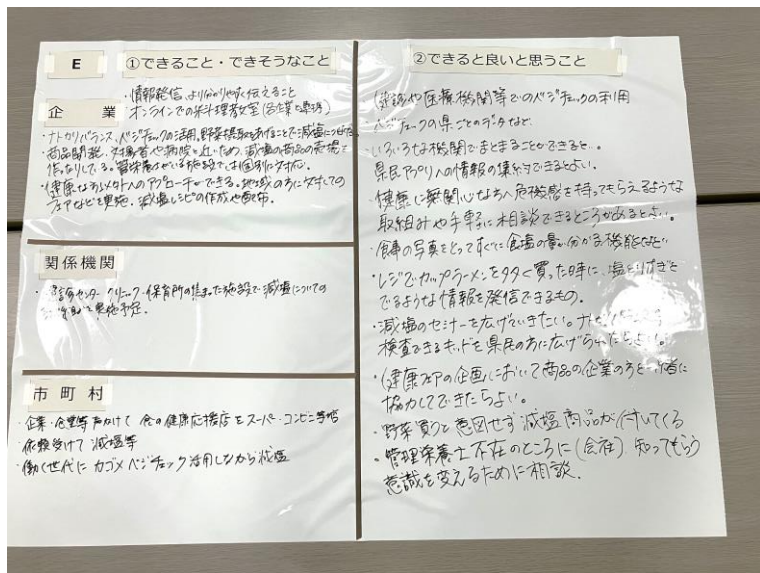 E
①できること・できそうなこと
企業
・情報発信、より分かりやすく伝えること
オンラインでの料理教室(各企業と連携)
・ナトカリバランス、ベジチェックの活用、野菜摂取をあげることで減塩につなげる
・商品開発、対象者や病院に近いため、減塩の商品の売場
作りなどしている。管栄養がいる施設では個別に対応。
・健康な方メインへのアプローチができる。地域の方に対しての
フェアなどを実施。減塩レシピの作成や配布。
関係機関
・健診センター クリニック 保育所の集まった施設で減塩についての
実施予定。
市町村
・企業・食堂等声かけて 食の健康応援店をスーパー・コンビニ等
・依頼受けて 減塩等
・働く世代に カゴメ ベジチェック活用しながら減塩
②できると良いと思うこと
・健診や医療機関等でのベジチェックの利用
・ベジチェックの県ごとのデータなど
・いろいろな機関でまとまることができると、
県民アプリへの情報の集約できるとよい。
・健康に無関心な方へ危機感を持ってもらえるような
取組みや手軽に相談できるところがあるとよい。
・食事の写真をとってすぐに食塩の量が分かる機能など
・レジでカップラーメンを多く買った時に、塩とりすぎと
でるような情報を発信できるもの。
・減塩のセミナーを広げていきたい。ナトカリ
検査できるキットを県民の方に広げられたらよい。
・健康フェアの企画において商品の企業の方と一緒に
協力してできたらよい。
・野菜買うと意図せず減塩商品が付いてくる
・管理栄養士不在のところに(会社)知ってもらう
意識を変えるために相談.